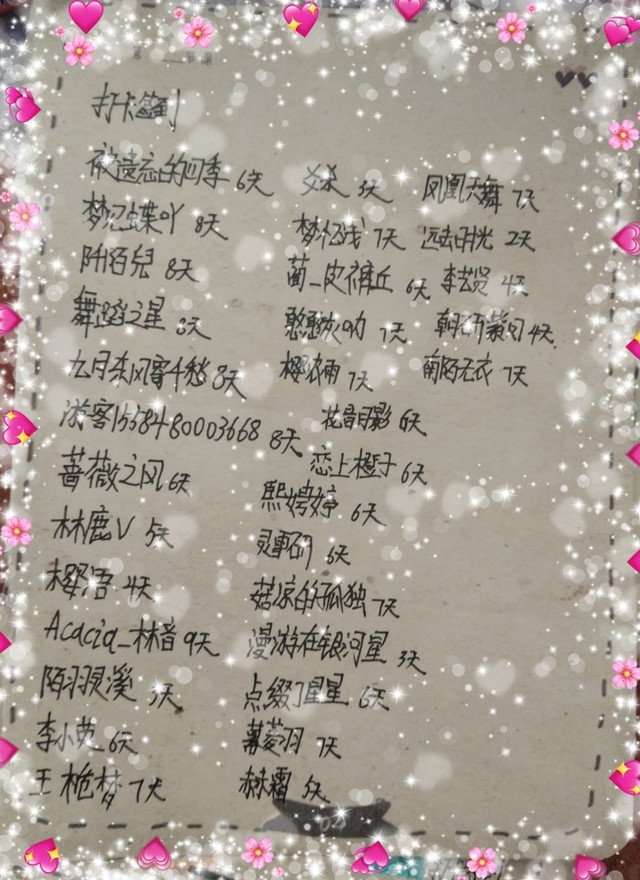 打卡签到
被遗忘的四季 6天
梦忆蝶吖 8天
陌百兒 8天
舞蹈之星 8天
九月东风寄千愁 8天
游客1558480003668 8天
蔷薇之风 6天
林鹿V 5天
樱浯 4天
Acacia_林音 9天
陌羽灵溪 3天
李小英 6天
王桅梦 7天
梦忆浅 7天
蔺_皮裤丘 6天
憨憨灰呐 7天
樱衣雨 7天
花音月影 6天
恋上橙子 6天
熙娉婷 6天
灵事研 6天
菇凉的孤独 7天
漫游在银河星 3天
点缀了星星 6天
慕菱羽 7天
赫霜 5天
凤凰天舞 7天
远去时光 2天
李芸贤 4天
4天
南陌无衣 7天